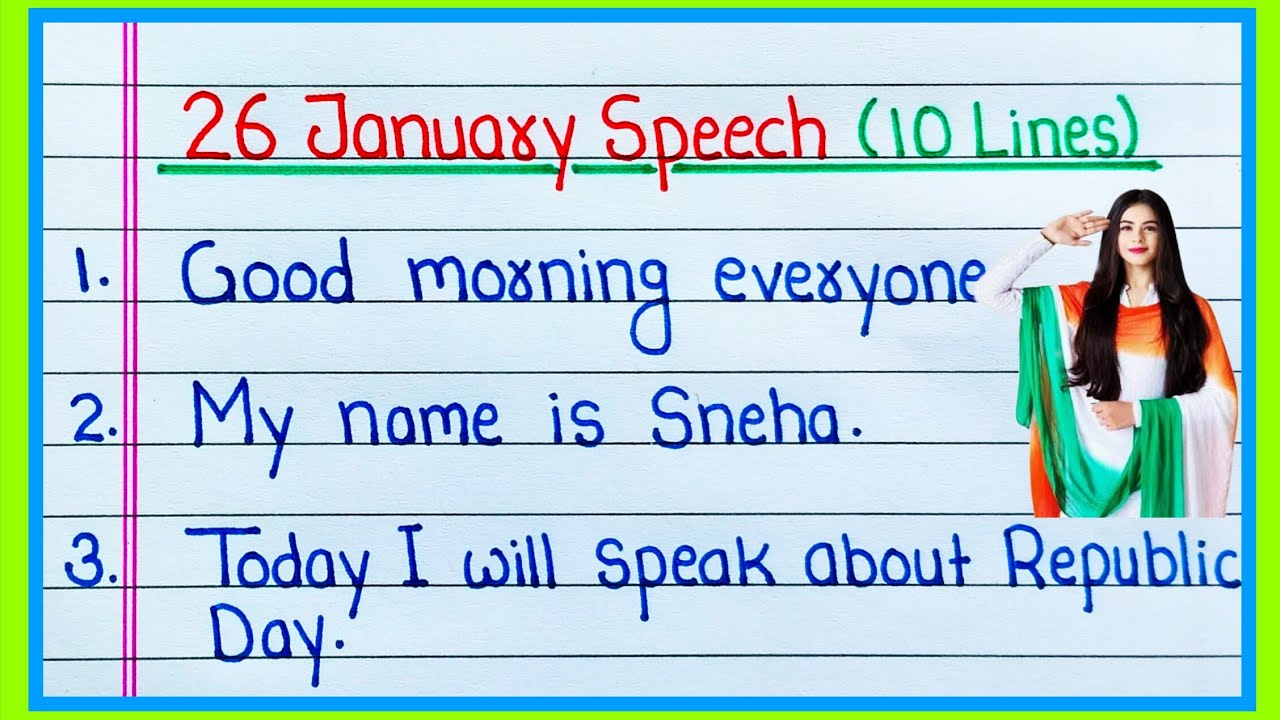 26 January Speech (10 Lines)
1. Good morning everyone
2. My name is Sneha.
3. Today I will speak about Republic
Day.